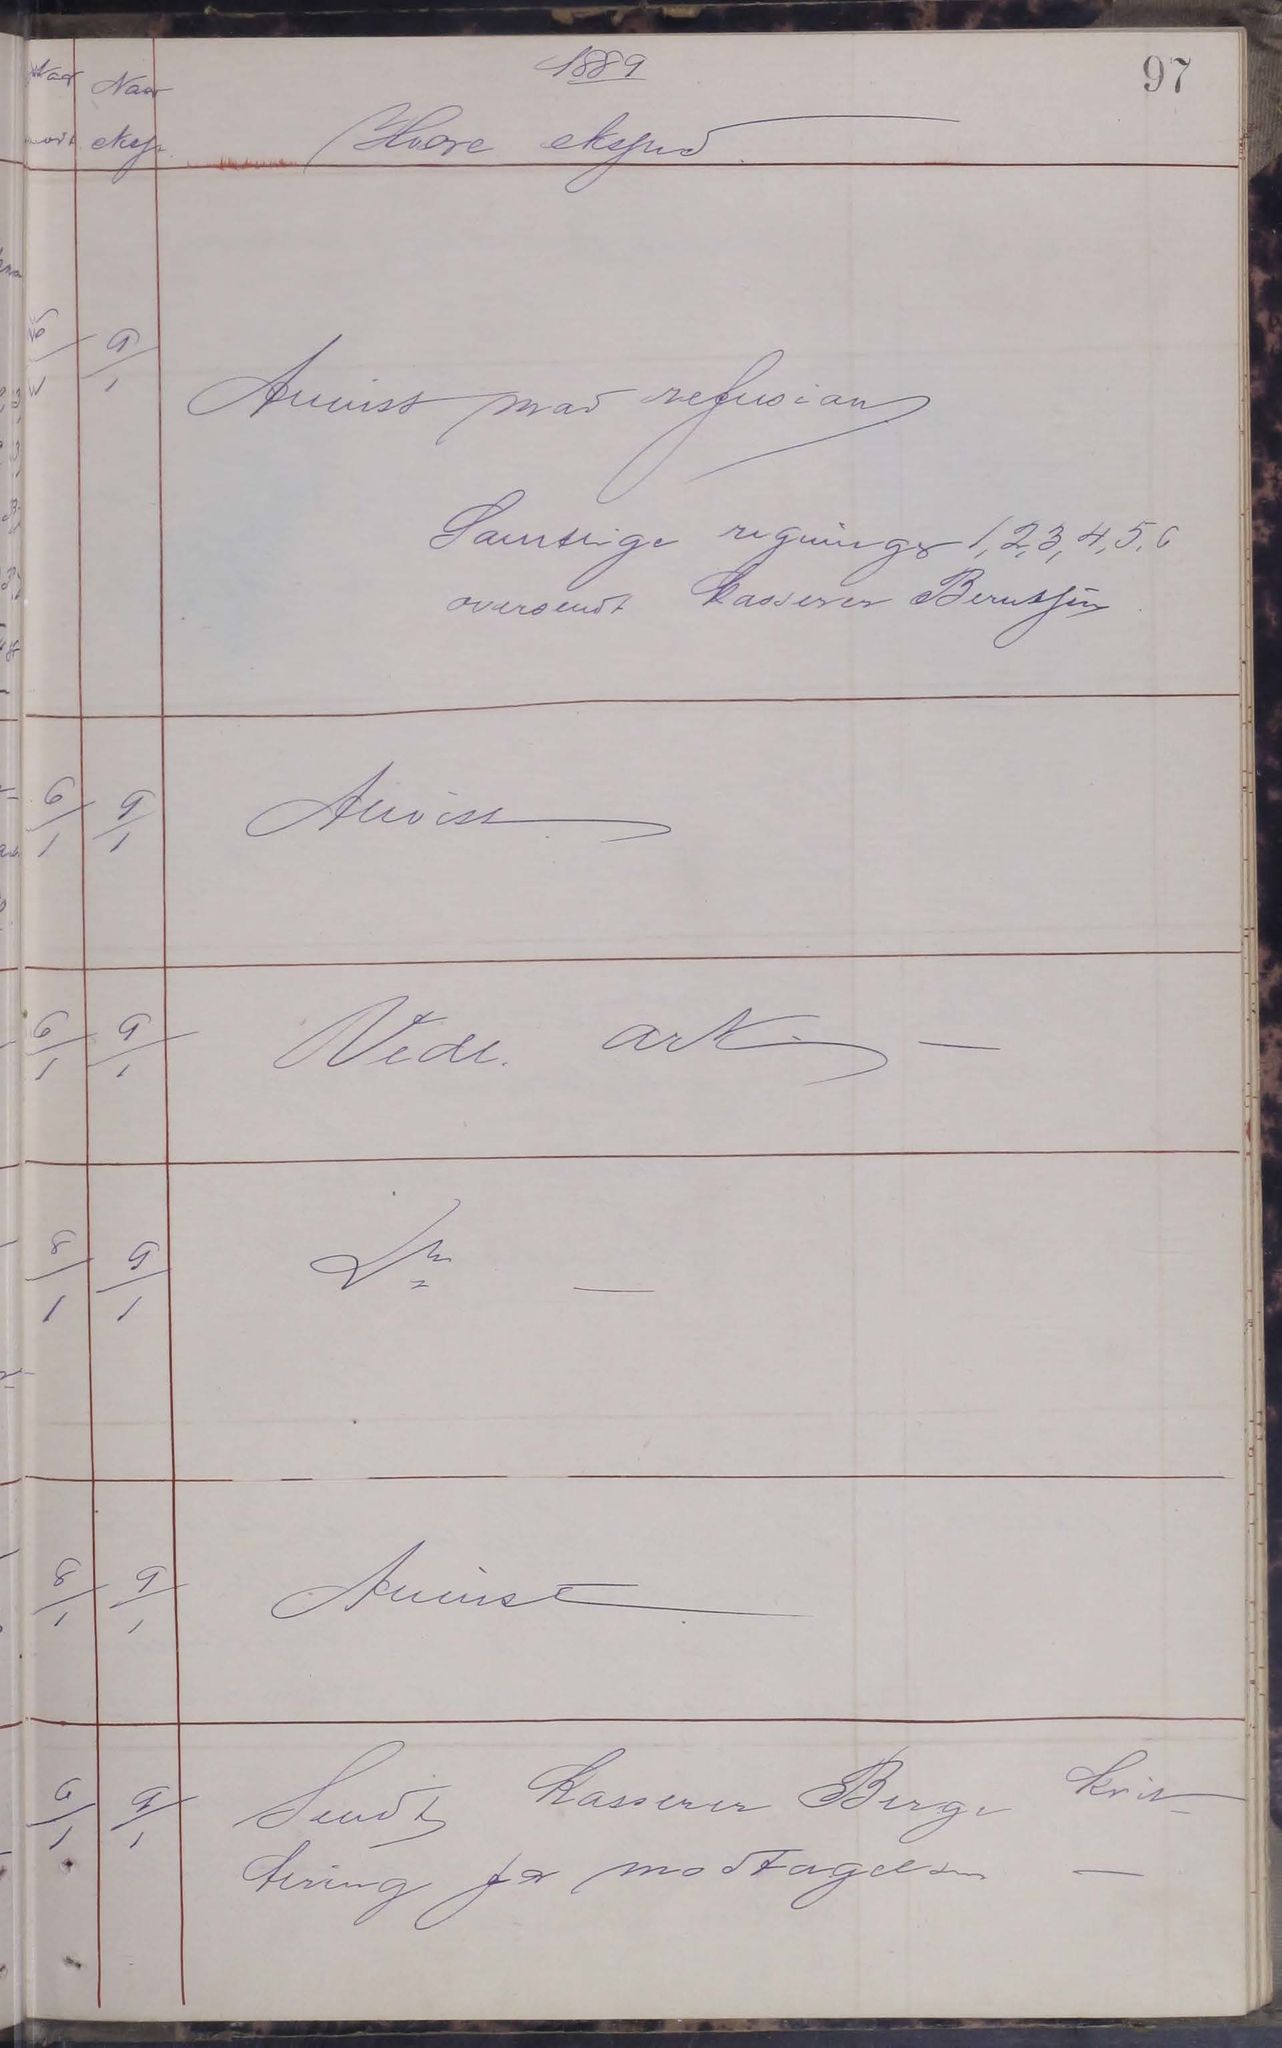 1889
97
Naar Naar
modt eksp. Hvore ekspred
6/1 9/1
Anvist mad refusion
Samtlige regninger 1, 2, 3, 4, 5, 6
oversendt kasserer Berntsen
6/1 9/1 Anvist
6/1 9/1 Vedl. ark. —
8/1 9/1 Do —
8/1 9/1 Anvist
6/1 9/1 Sendt kasserer Berge kvit-
tering for modtagelsen —